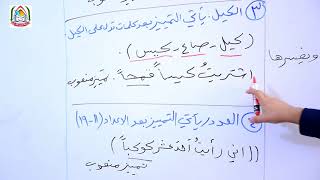 ③ الكيل: يأتي التمييز بعد كلمات تدل على الكيل
(كيل - صاع - كيس).
اشتريتُ كيساً قمحاً. تمييز منصوب
ويفسرها
④ العدد: يأتي التمييز بعد الأعداد (١١-١٩)
((اني رأيتُ أحدَ عشرَ كوكباً))
تمييز منصوب